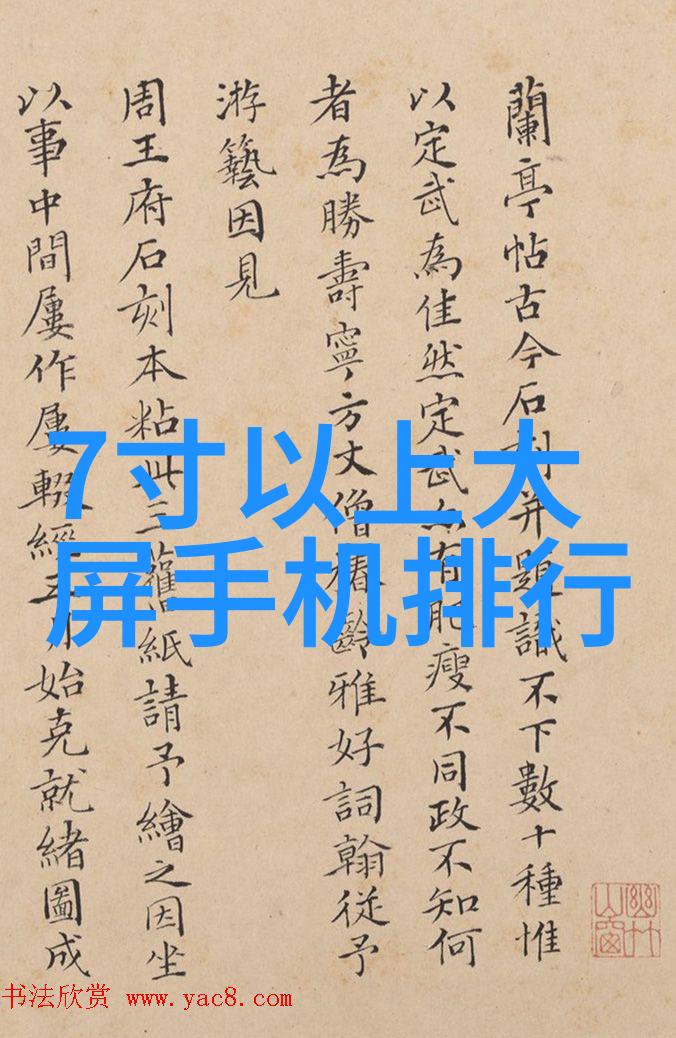 蘭亭帖古今石刻并題識不下數十種惟
以定武為佳然定武亦有肥瘦不同政不知何
者為勝壽寧方丈僧椿齡雅好詞翰従予
游藝因見
周王府石刻本粘此三舊紙請予繪之因坐
以事中間屢作屢輟經五月始克就緒圖成
7寸以上大
屏手机排行
书法欣赏 www.yac8.com